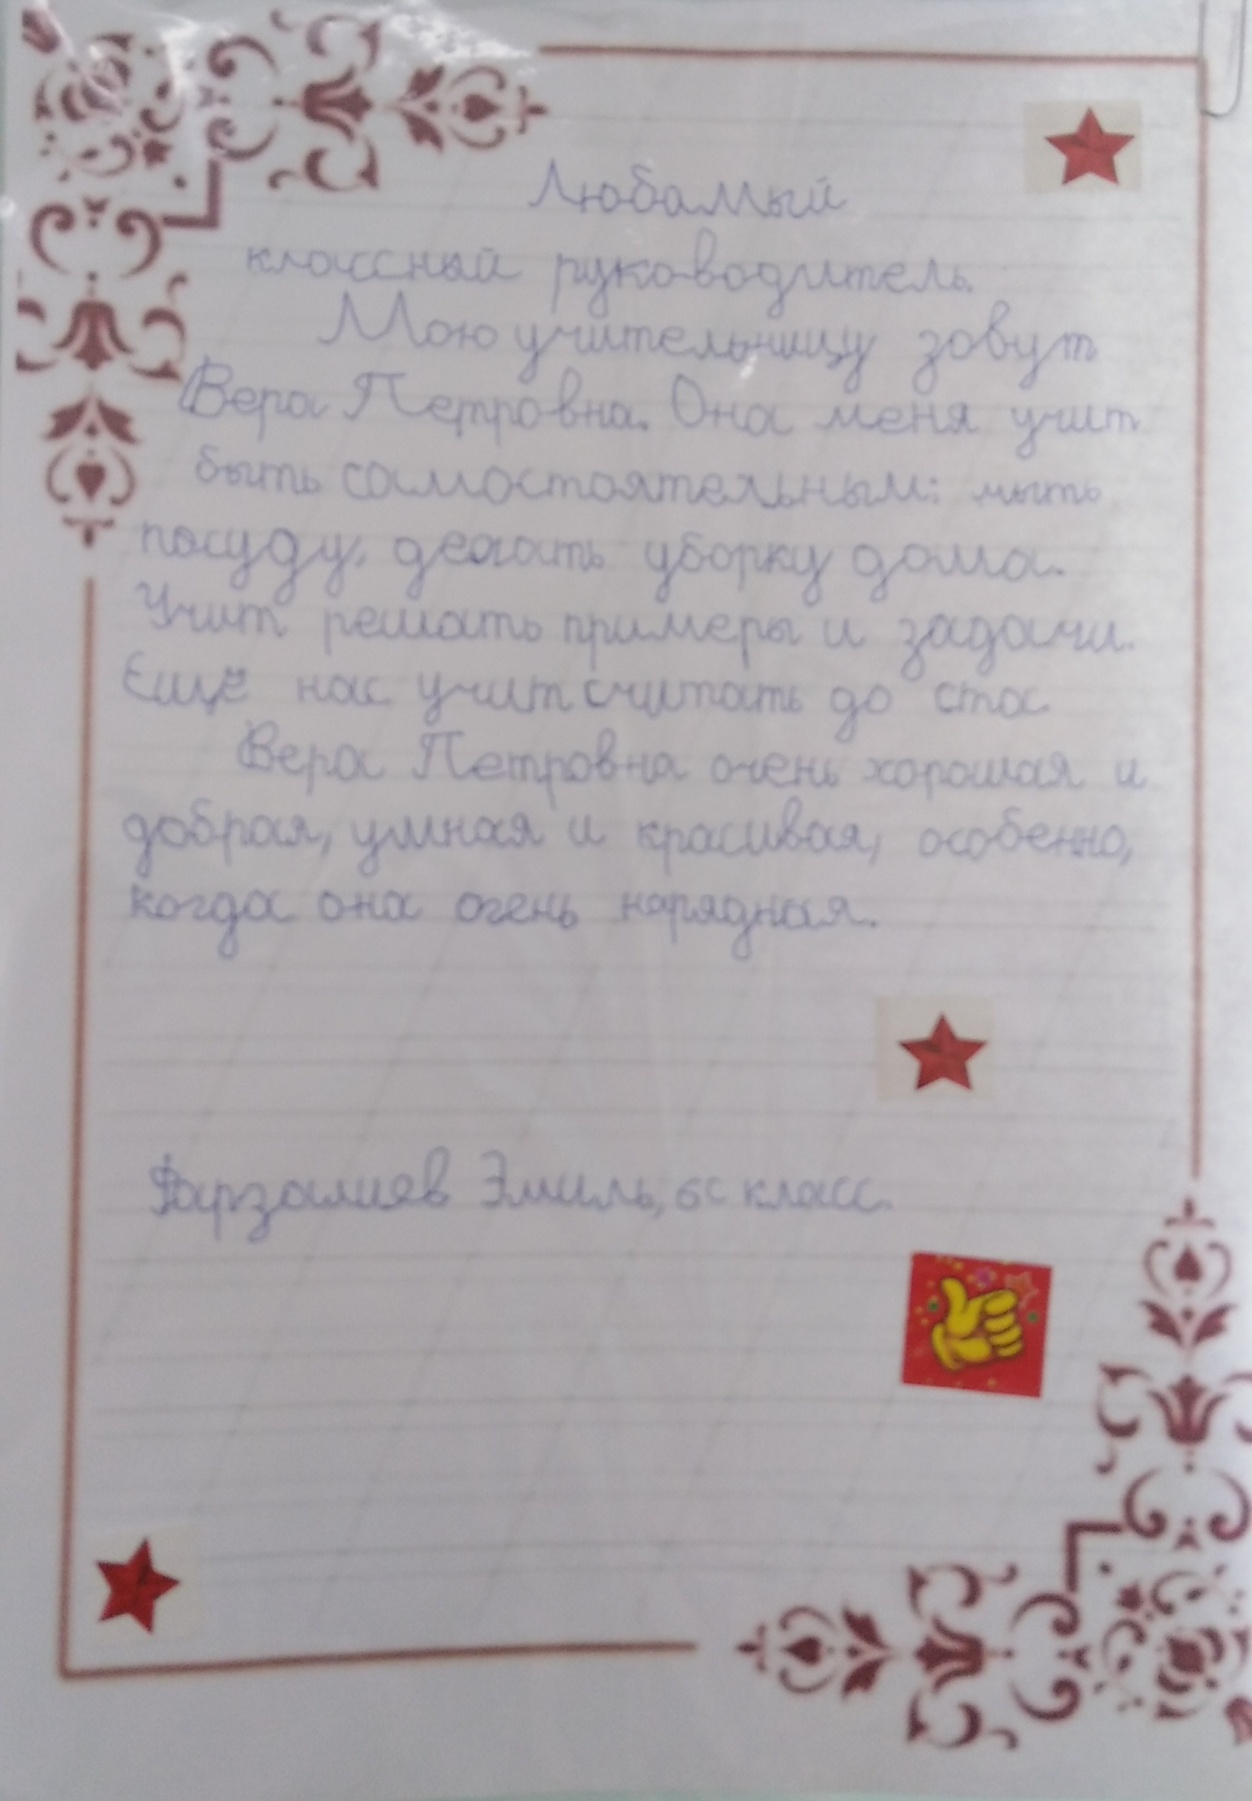 Любамый
классный руководитель.
Мою учительницу зовут
Вера Петровна. Она меня учит
быть самостоятельным: мыть
посуду, делать уборку дома.
Учит решать примеры и задачи.
Ещё нас учит считать до ста
Вера Петровна очень хорошая и
добрая, умная и красивая, особенно,
когда она очень нарядная.
Фарзалиев Эмиль, 6С класс.